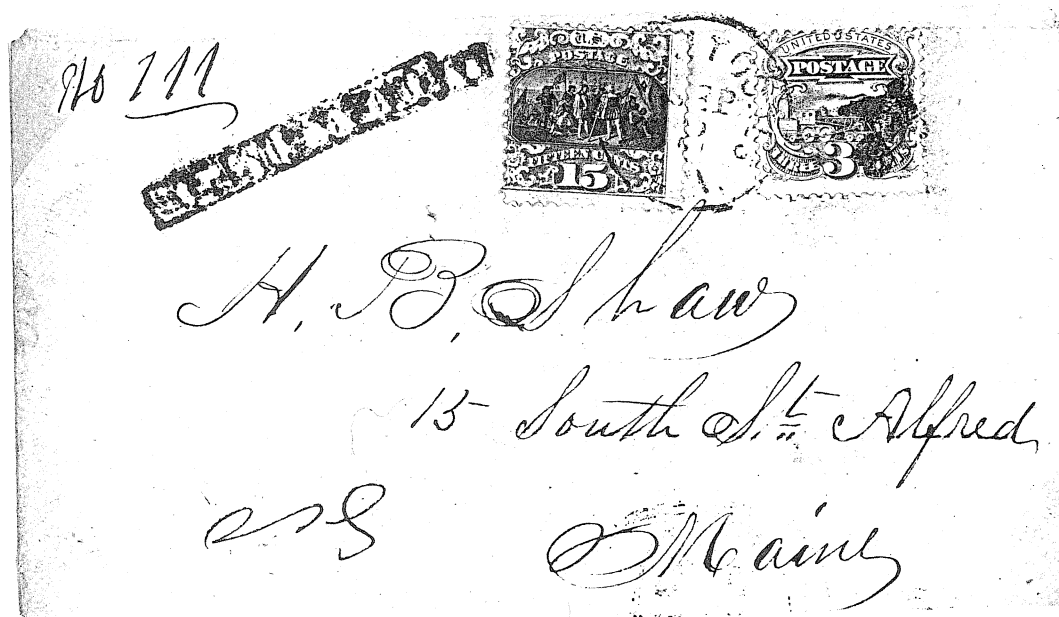 No 111
U.S. POSTAGE
FIFTEEN CENTS
15
UNITED STATES
POSTAGE
THREE 3 CENTS
H. B. Shaw
15 South St. Alfred
Maine